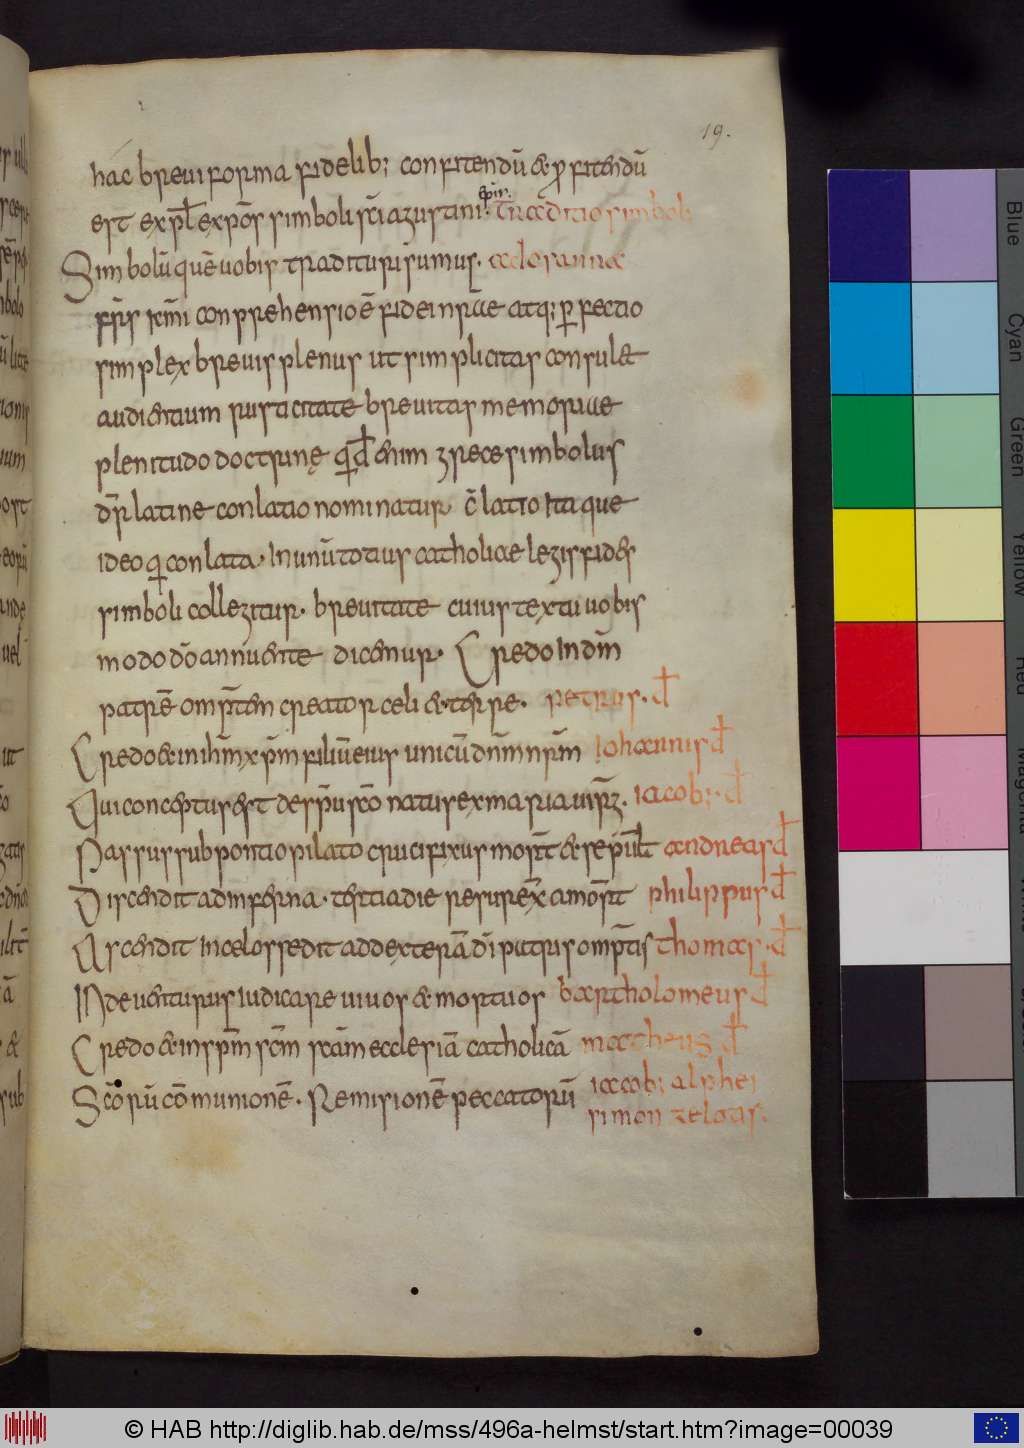 19.
hac breui forma fidelib; confitendū & ꝓfitendū
est expl̄ expōs simboli sc̄i agustini. ep̄i. traditio simboli
Simbolū quē uobis tradituri sumus. ad osanna
fr̄s kr̄mi conprehensio ē fidei nr̄ae atq; perfectio
simplex breuis plenus ut simplicitas consulat
audientium rusticitate breuitas memoriae
plenitudo doctrinę qđ enim grece simbolus
dr̄ latine conlatio nominatur c̄latio itaque
ideo qi conlata. In unū totius catholicae legis fides
simboli collegitur. breuitate cuius textu uobis
modo dō annuente dicemus. Credo In dm̄
patrē omp̄tem creator celi & terre. petrus. đ
Credo & in ihm̄ xp̄m filiū eius unicū dnm̄ nr̄m Iohannis đ
Qui conceptus est de sp̄u sc̄o natus ex maria uirg. iacob; đ
Passus sub pontio pilato crucifixus mort̄ & sepult andreas đ
Discendit ad inferna. tertia die resurex̄ a mort̄ philippus đ
Ascendit In celos sedit ad dexterā dī patris omp̄tis thomas. đ
Inde uenturus Iudicare uiuos & mortuos bartholomeus đ
Credo & in sp̄m sc̄m sc̄am ecclesiā catholicā matheus đ
Sc̄orū cōmunionē. Remisionē peccatorū iacob; alphei
simon zelotas.
© HAB http://diglib.hab.de/mss/496a-helmst/start.htm?image=00039
Blue
Cyan
Green
Yellow
Red
Magenta